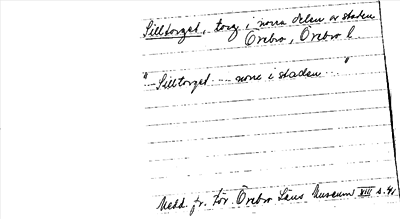 Silltorget, torg i norra delen av staden
Örebro, Örebro l.
"Silltorget norr i staden"
Medd. fr. För. Örebro Läns Museum XIII s. 41